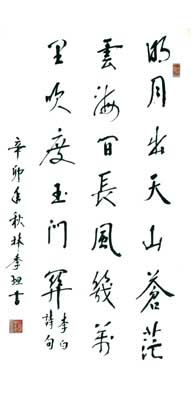 明月出天山蒼茫
雲海間長風幾萬
里吹度玉門關
李白
詩句
辛卯年秋林李書